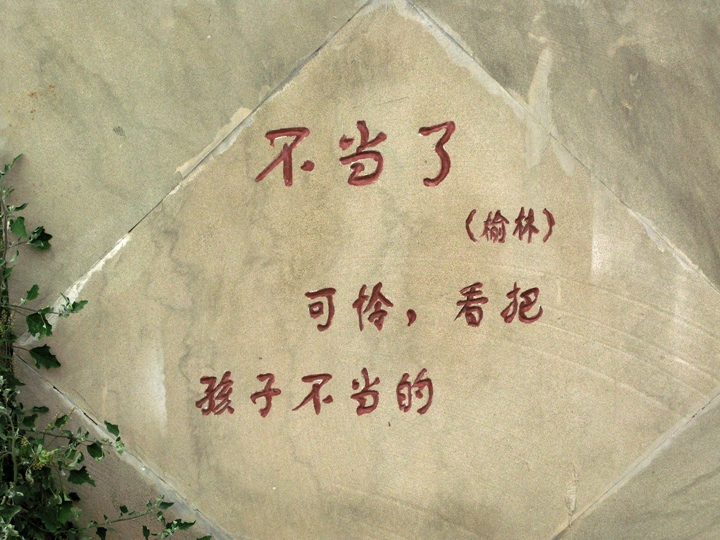 不当了
（榆林）
可怜，看把
孩子不当的